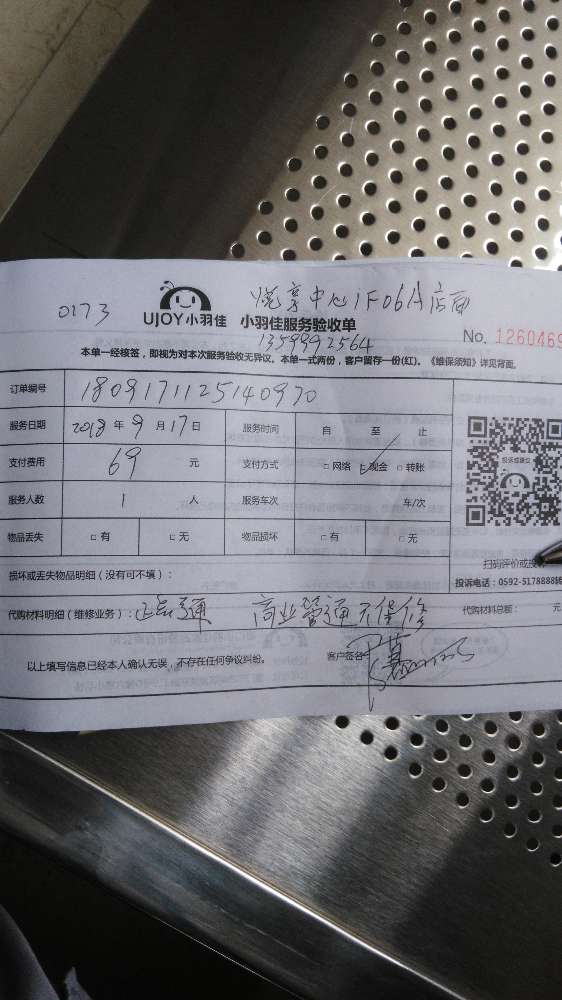 0173
悦享中心1F06A店面
UJOY小羽佳 小羽佳服务验收单
13599992564
No. 1260469
本单一经核签，即视为对本次服务验收无异议。本单一式两份，客户留存一份(红)。《维保须知》详见背面。
订单编号 1809171125140970
服务日期 2018 年 9 月 17 日 服务时间 自 至 止
支付费用 69 元 支付方式 □网络 □现金 □转账
投诉或建议
服务人数 1 人 服务车次 车/次
物品丢失 □有 □无 物品损坏 □有 □无
扫码评价或投诉
损坏或丢失物品明细（没有可不填）：
投诉电话：0592-5178888转
代购材料明细（维修业务）： 商业管通无保修 代购材料总额： 元
以上填写信息已经本人确认无误，不存在任何争议纠纷。 客户签名